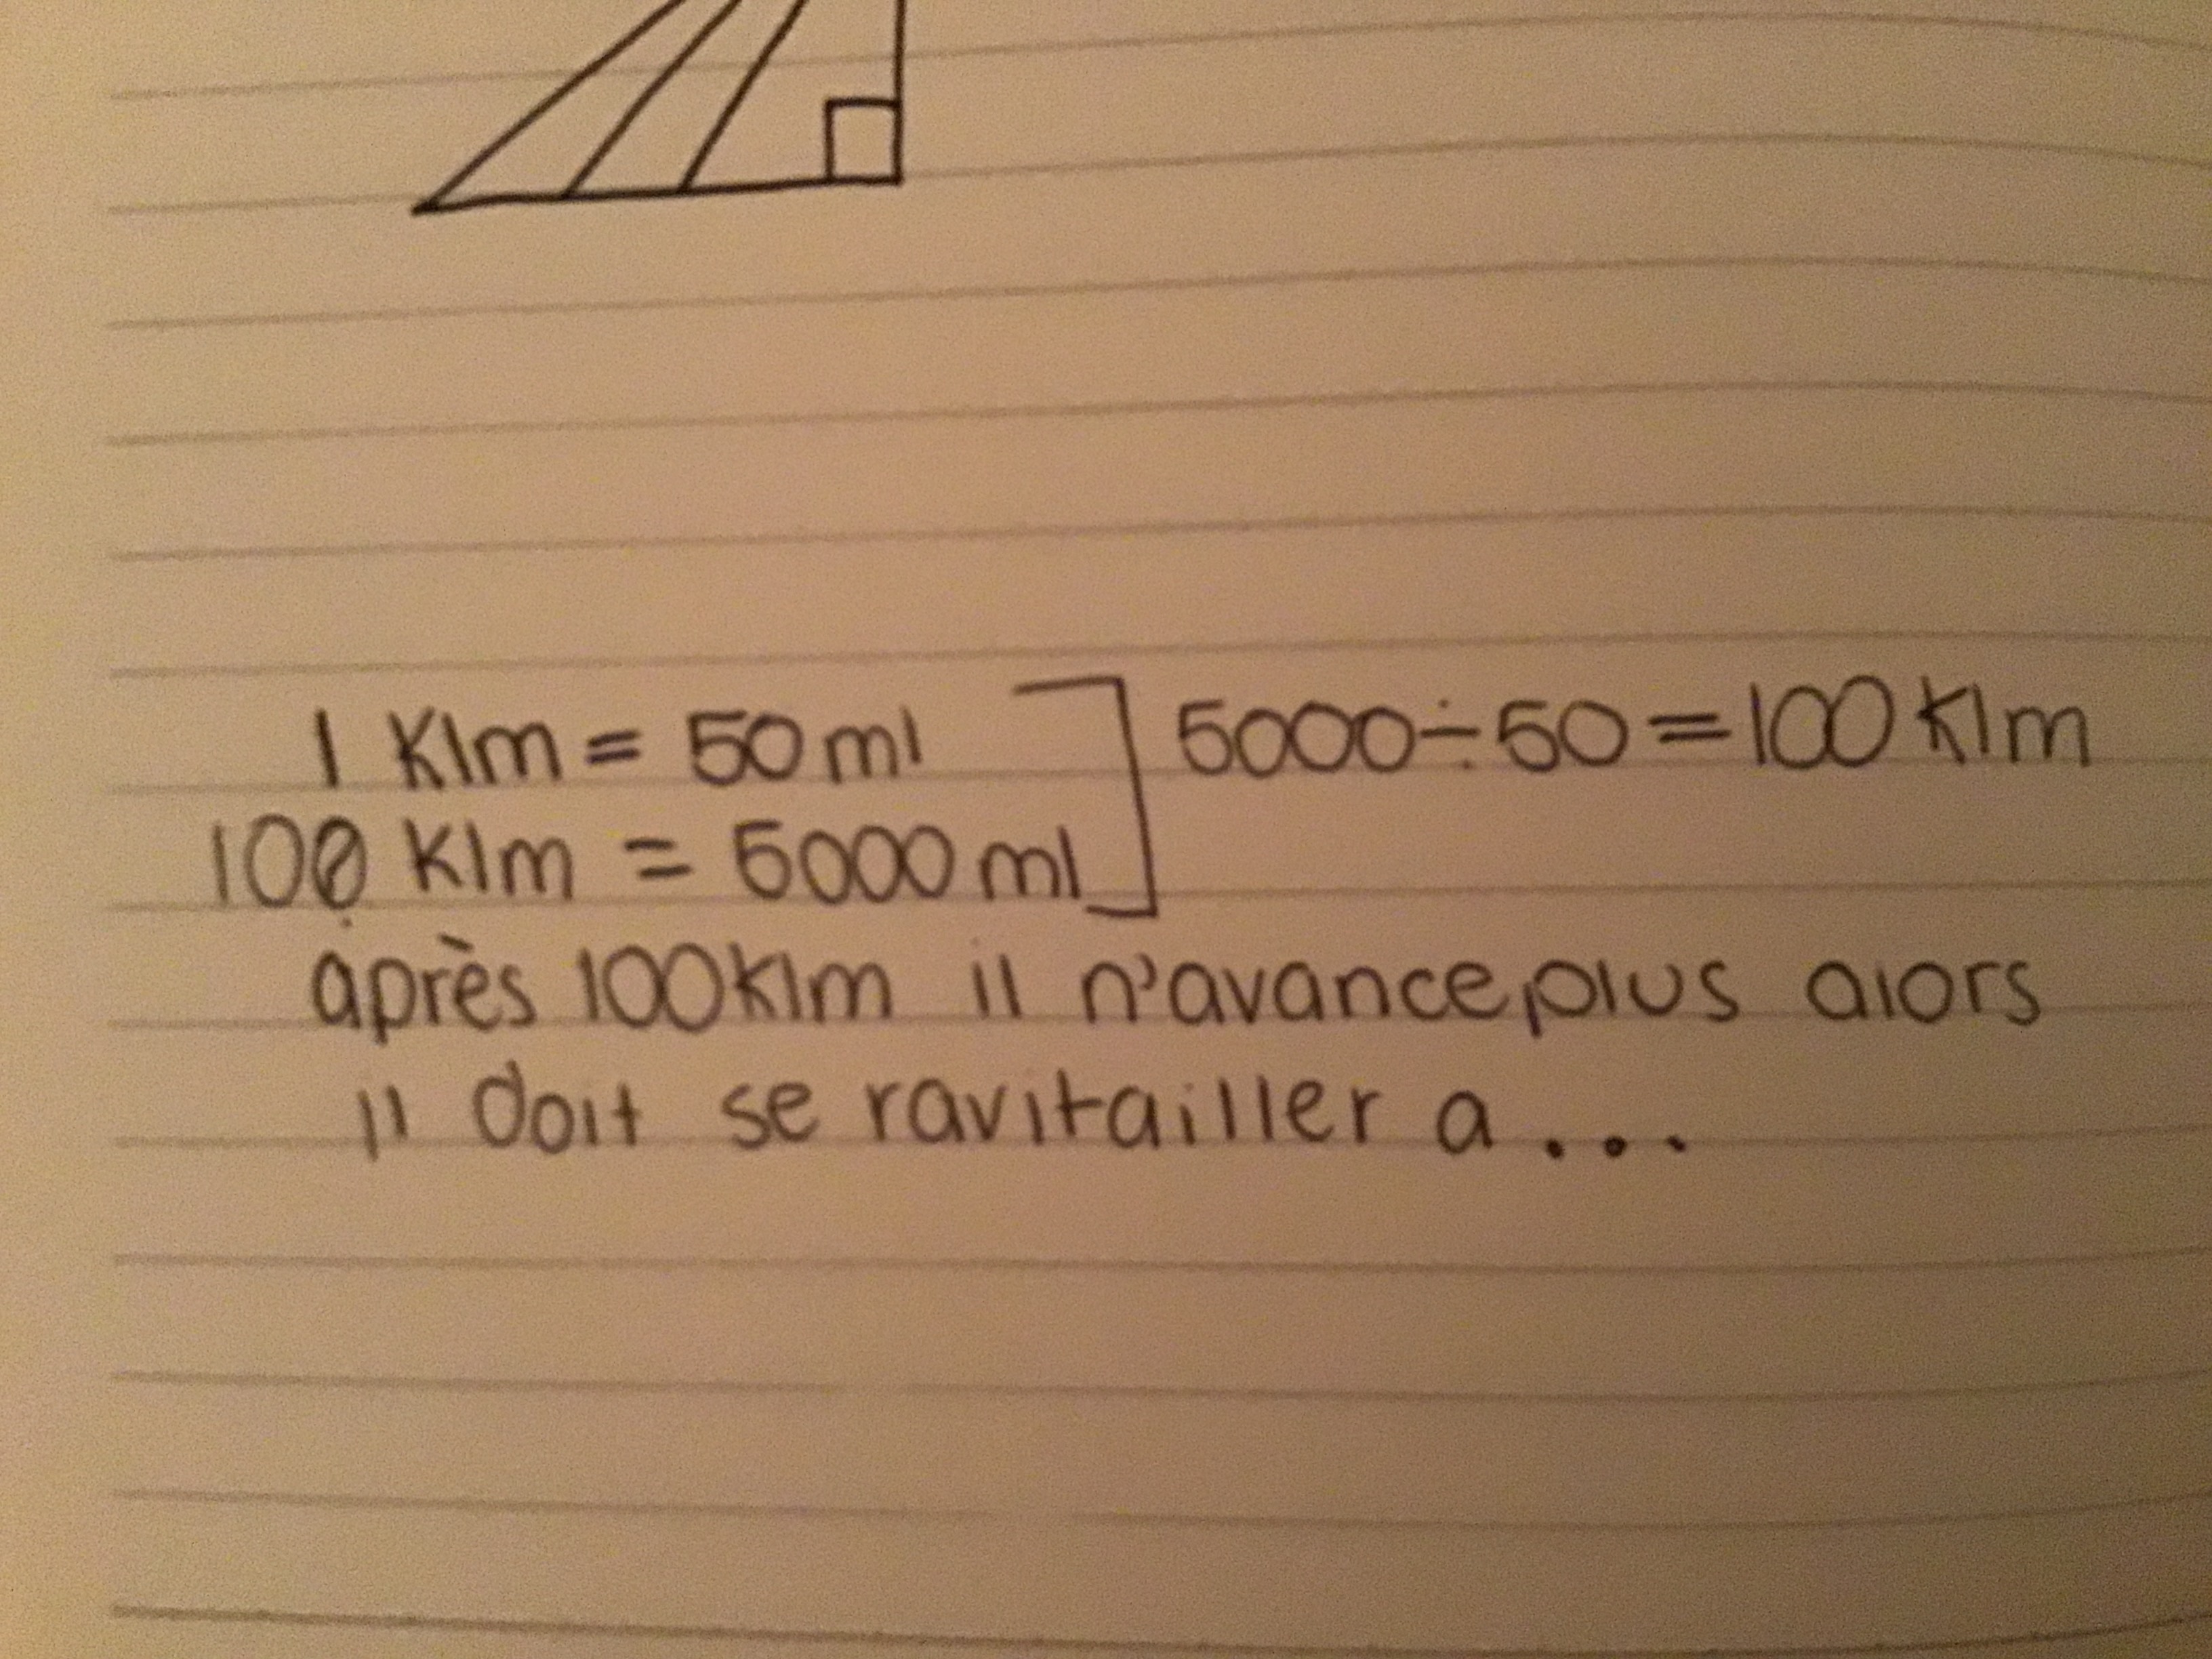 1 Klm = 50 ml
5000÷50=100 Klm
100 Klm = 5000 ml
après 100 klm il n'avance plus alors
il doit se ravitailler a...